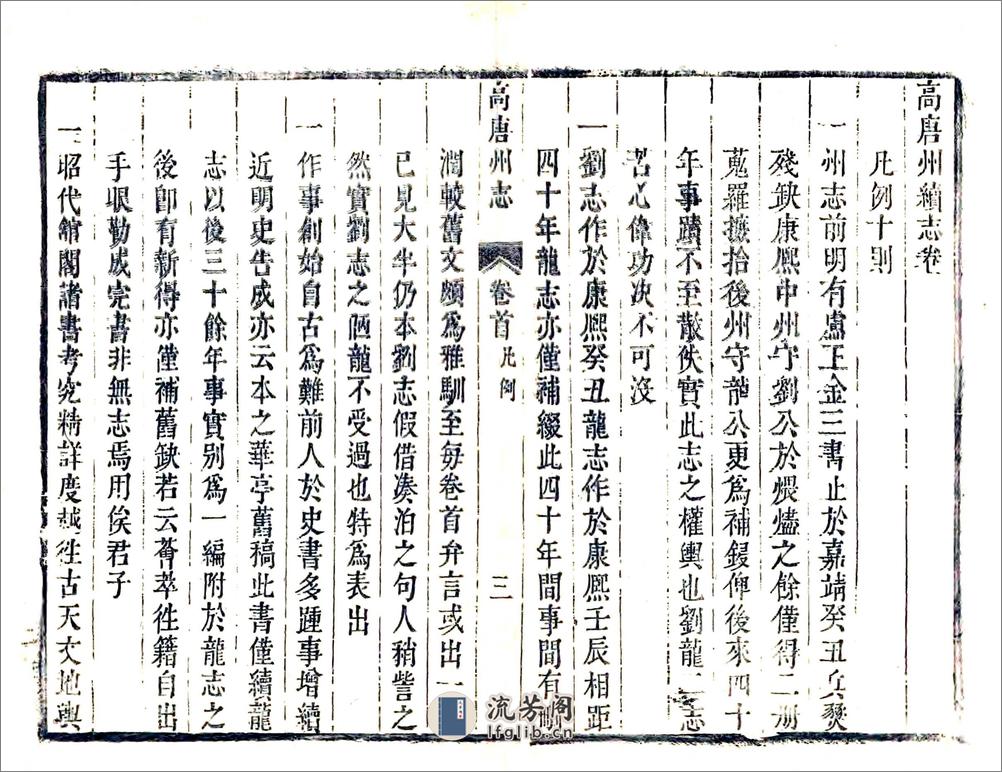 高唐州續志卷
凡例十則
一州志前明有盧王金三書止於嘉靖癸丑兵燹
殘缺康熙中州守劉公於煨燼之餘僅得二册
蒐羅摭拾後州守龍公更為補錣俾後來四十
年事蹟不至散佚實此志之權輿也劉龍二志
苦心偉功决不可沒
一劉志作於康熙癸丑龍志作於康熙壬辰相距
四十年龍志亦僅補綴此四十年間事間有
高唐州志
卷首
凡例
三
潤較舊文頗為雅馴至每卷首弁言或出一
已見大半仍本劉志假借凑泊之句人稍訾之
然實劉志之陋龍不受過也特為表出
一作事創始自古為難前人於史書多踵事增續
近明史告成亦云本之華亭舊稿此書僅續龍
志以後三十餘年事實別為一編附於龍志之
後卽有新得亦僅補舊缺若云薈萃徃籍自出
手眼勒成完書非無志焉用俟君子
一昭代館閣諸書考究精詳度越徃古天文地輿
流芳阁
lfglib.cn